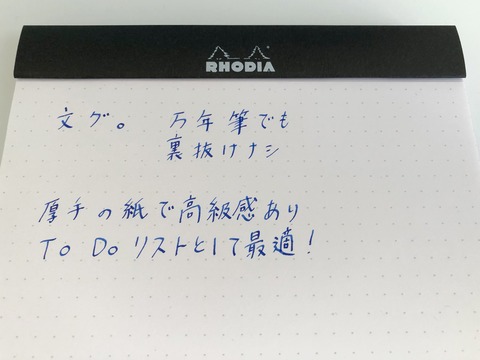 RHODIA
文グ。 万年筆でも
裏抜けナシ
厚手の紙で高級感あり
To Do リストとして最適!